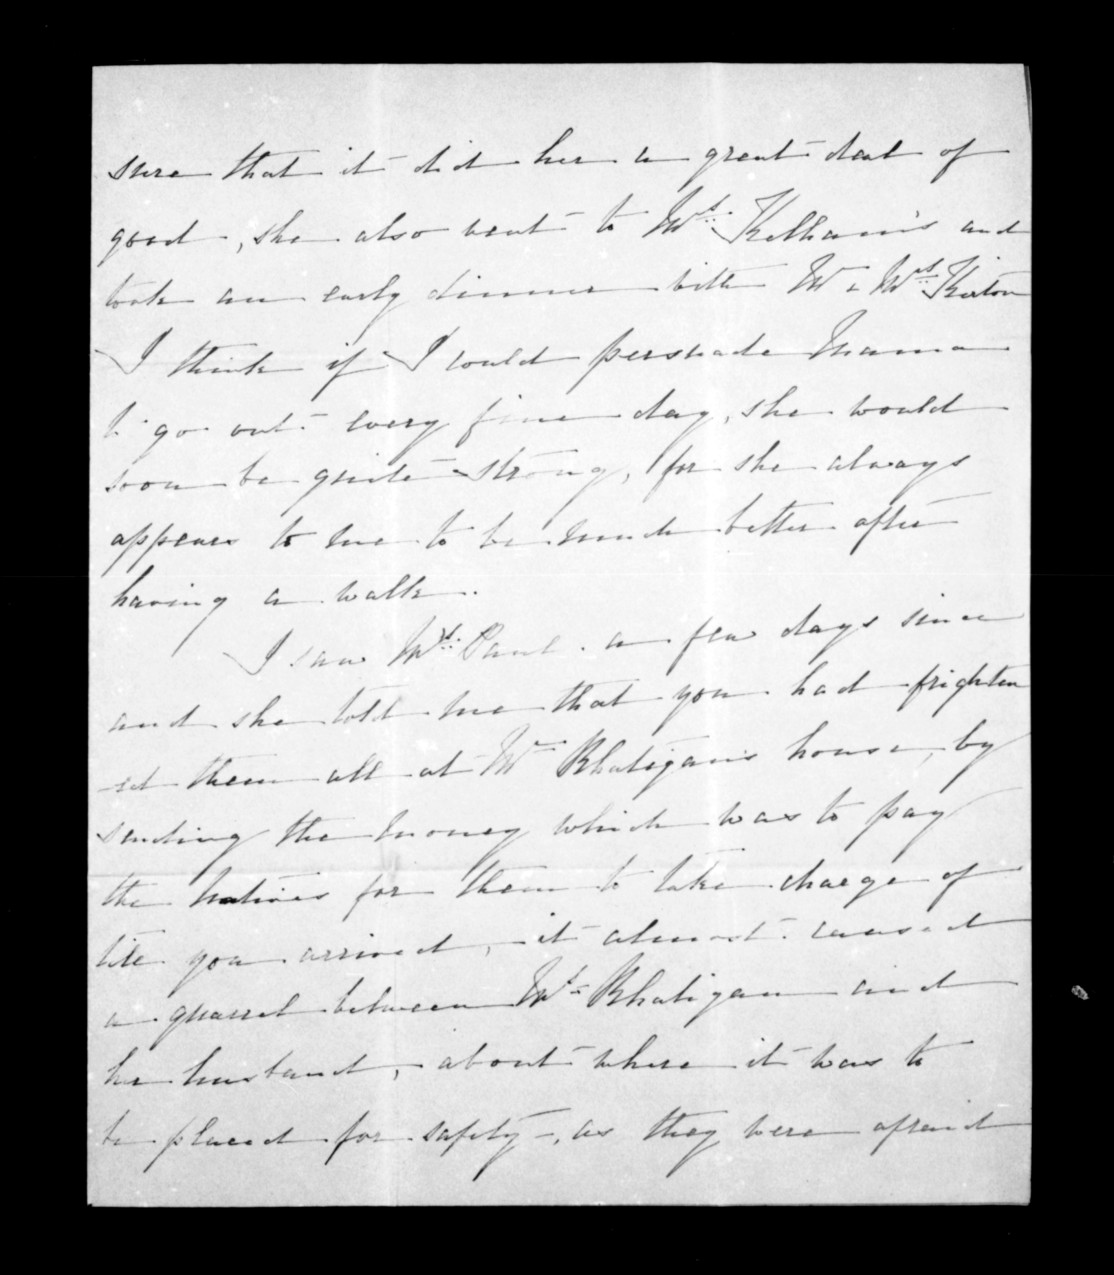 sure that it did her a great deal of
good, she also went to Mrs. Kelham's and
took an early dinner with Mr & Mrs. Kirton
I think if I could persuade Mama
to go out every fine day, she would
soon be quite strong, for she always
appears to me to be much better after
having a walk.
I saw Mrs. Paul. a few days since
and she told me that you had frighten
ed them all at Mr Rhatigan's house, by
sending the money which was to pay
the natives for them to take charge of
till you arrived, it almost caused
a quarrel between Mrs Rhatigan and
her husband, about where it was to
be placed for safety, as they were afraid